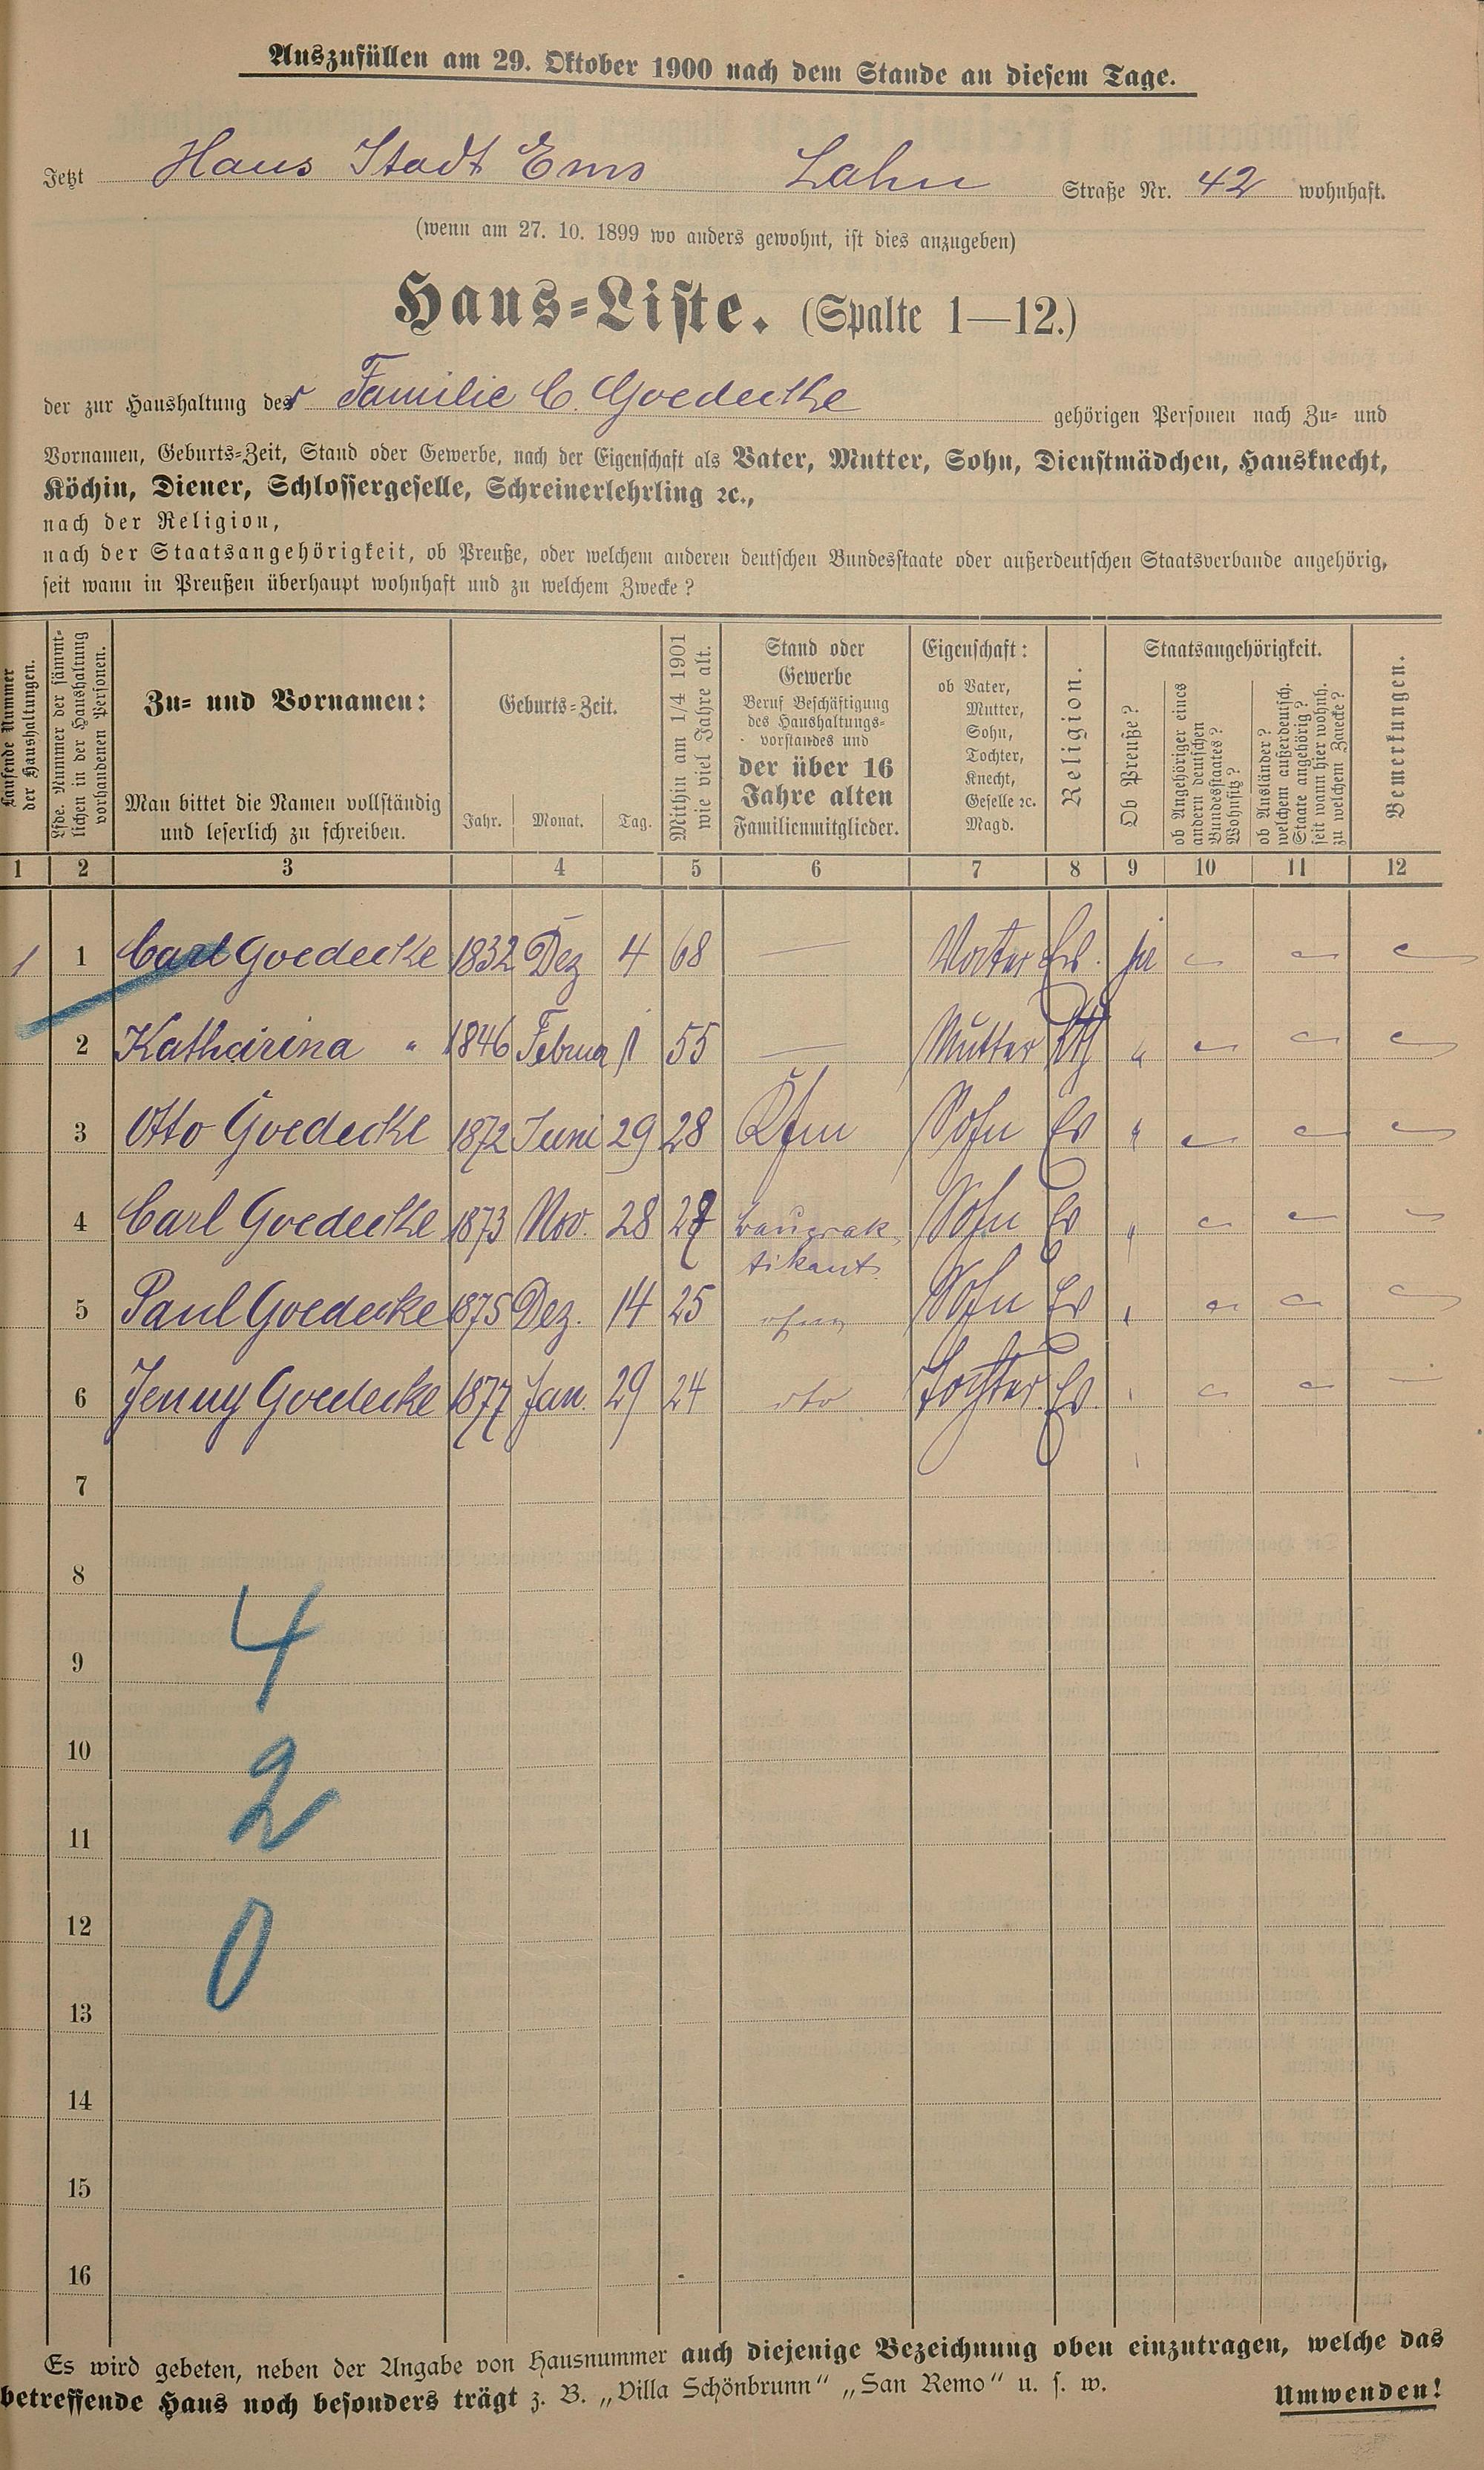 Auszufüllen am 29. Oktober 1900 nach dem Stande an diesem Tage.
Jetzt Haus Stadt Ems Lahn Straße Nr. 42 wohnhaft.
(wenn am 27. 10. 1899 wo anders gewohnt, ist dies anzugeben)
Haus-Liste. (Spalte 1—12.)
der zur Haushaltung der Familie C. Goedecke gehörigen Personen nach Zu- und
Vornamen, Geburts-Zeit, Stand oder Gewerbe, nach der Eigenschaft als Vater, Mutter, Sohn, Dienstmädchen, Hausknecht,
Köchin, Diener, Schlossergeselle, Schreinerlehrling ꝛc.,
nach der Religion,
nach der Staatsangehörigkeit, ob Preuße, oder welchem anderen deutschen Bundesstaate oder außerdeutschen Staatsverbande angehörig,
seit wann in Preußen überhaupt wohnhaft und zu welchem Zwecke?
Laufende Nummer
der Haushaltungen.
Lfde. Nummer der sämmt-
lichen in der Haushaltung
vorhandenen Personen.
Zu- und Vornamen:
Man bittet die Namen vollständig
und leserlich zu schreiben.
Geburts-Zeit.
Jahr. Monat. Tag.
Mithin am 1/4 1901
wie viel Jahre alt.
Stand oder
Gewerbe
Beruf Beschäftigung
des Haushaltungs-
vorstandes und
der über 16
Jahre alten
Familienmitglieder.
Eigenschaft:
ob Vater,
Mutter,
Sohn,
Tochter,
Knecht,
Geselle ꝛc.
Magd.
Religion.
Staatsangehörigkeit.
Ob Preuße?
ob Angehöriger eines
andern deutschen
Bundesstaates?
Wohnsitz?
ob Ausländer?
welchem außerdeutsch.
Staate angehörig?
seit wann hier wohnh.
zu welchem Zwecke?
Bemerkungen.
1 2 3 4 5 6 7 8 9 10 11 12
1 1 Carl Goedecke 1832 Dez 4 68 — Vater Ev. ja
2 Katharina " 1846 Februar 1 55 — Mutter "
3 Otto Goedecke 1872 Juni 29 28 Kfm Sohn Ev "
4 Carl Goedecke 1873 Nov. 28 27 Bauprak-
tikant. Sohn Ev "
5 Paul Goedecke 1875 Dez. 14 25 ohne Sohn Ev "
6 Jenny Goedecke 1877 Jan. 29 24 dto Tochter Ev. "
7
8
4
9
10
2
11
12
0
13
14
15
16
Es wird gebeten, neben der Angabe von Hausnummer auch diejenige Bezeichnung oben einzutragen, welche das
betreffende Haus noch besonders trägt z. B. „Villa Schönbrunn" „San Remo" u. s. w.
Umwenden!